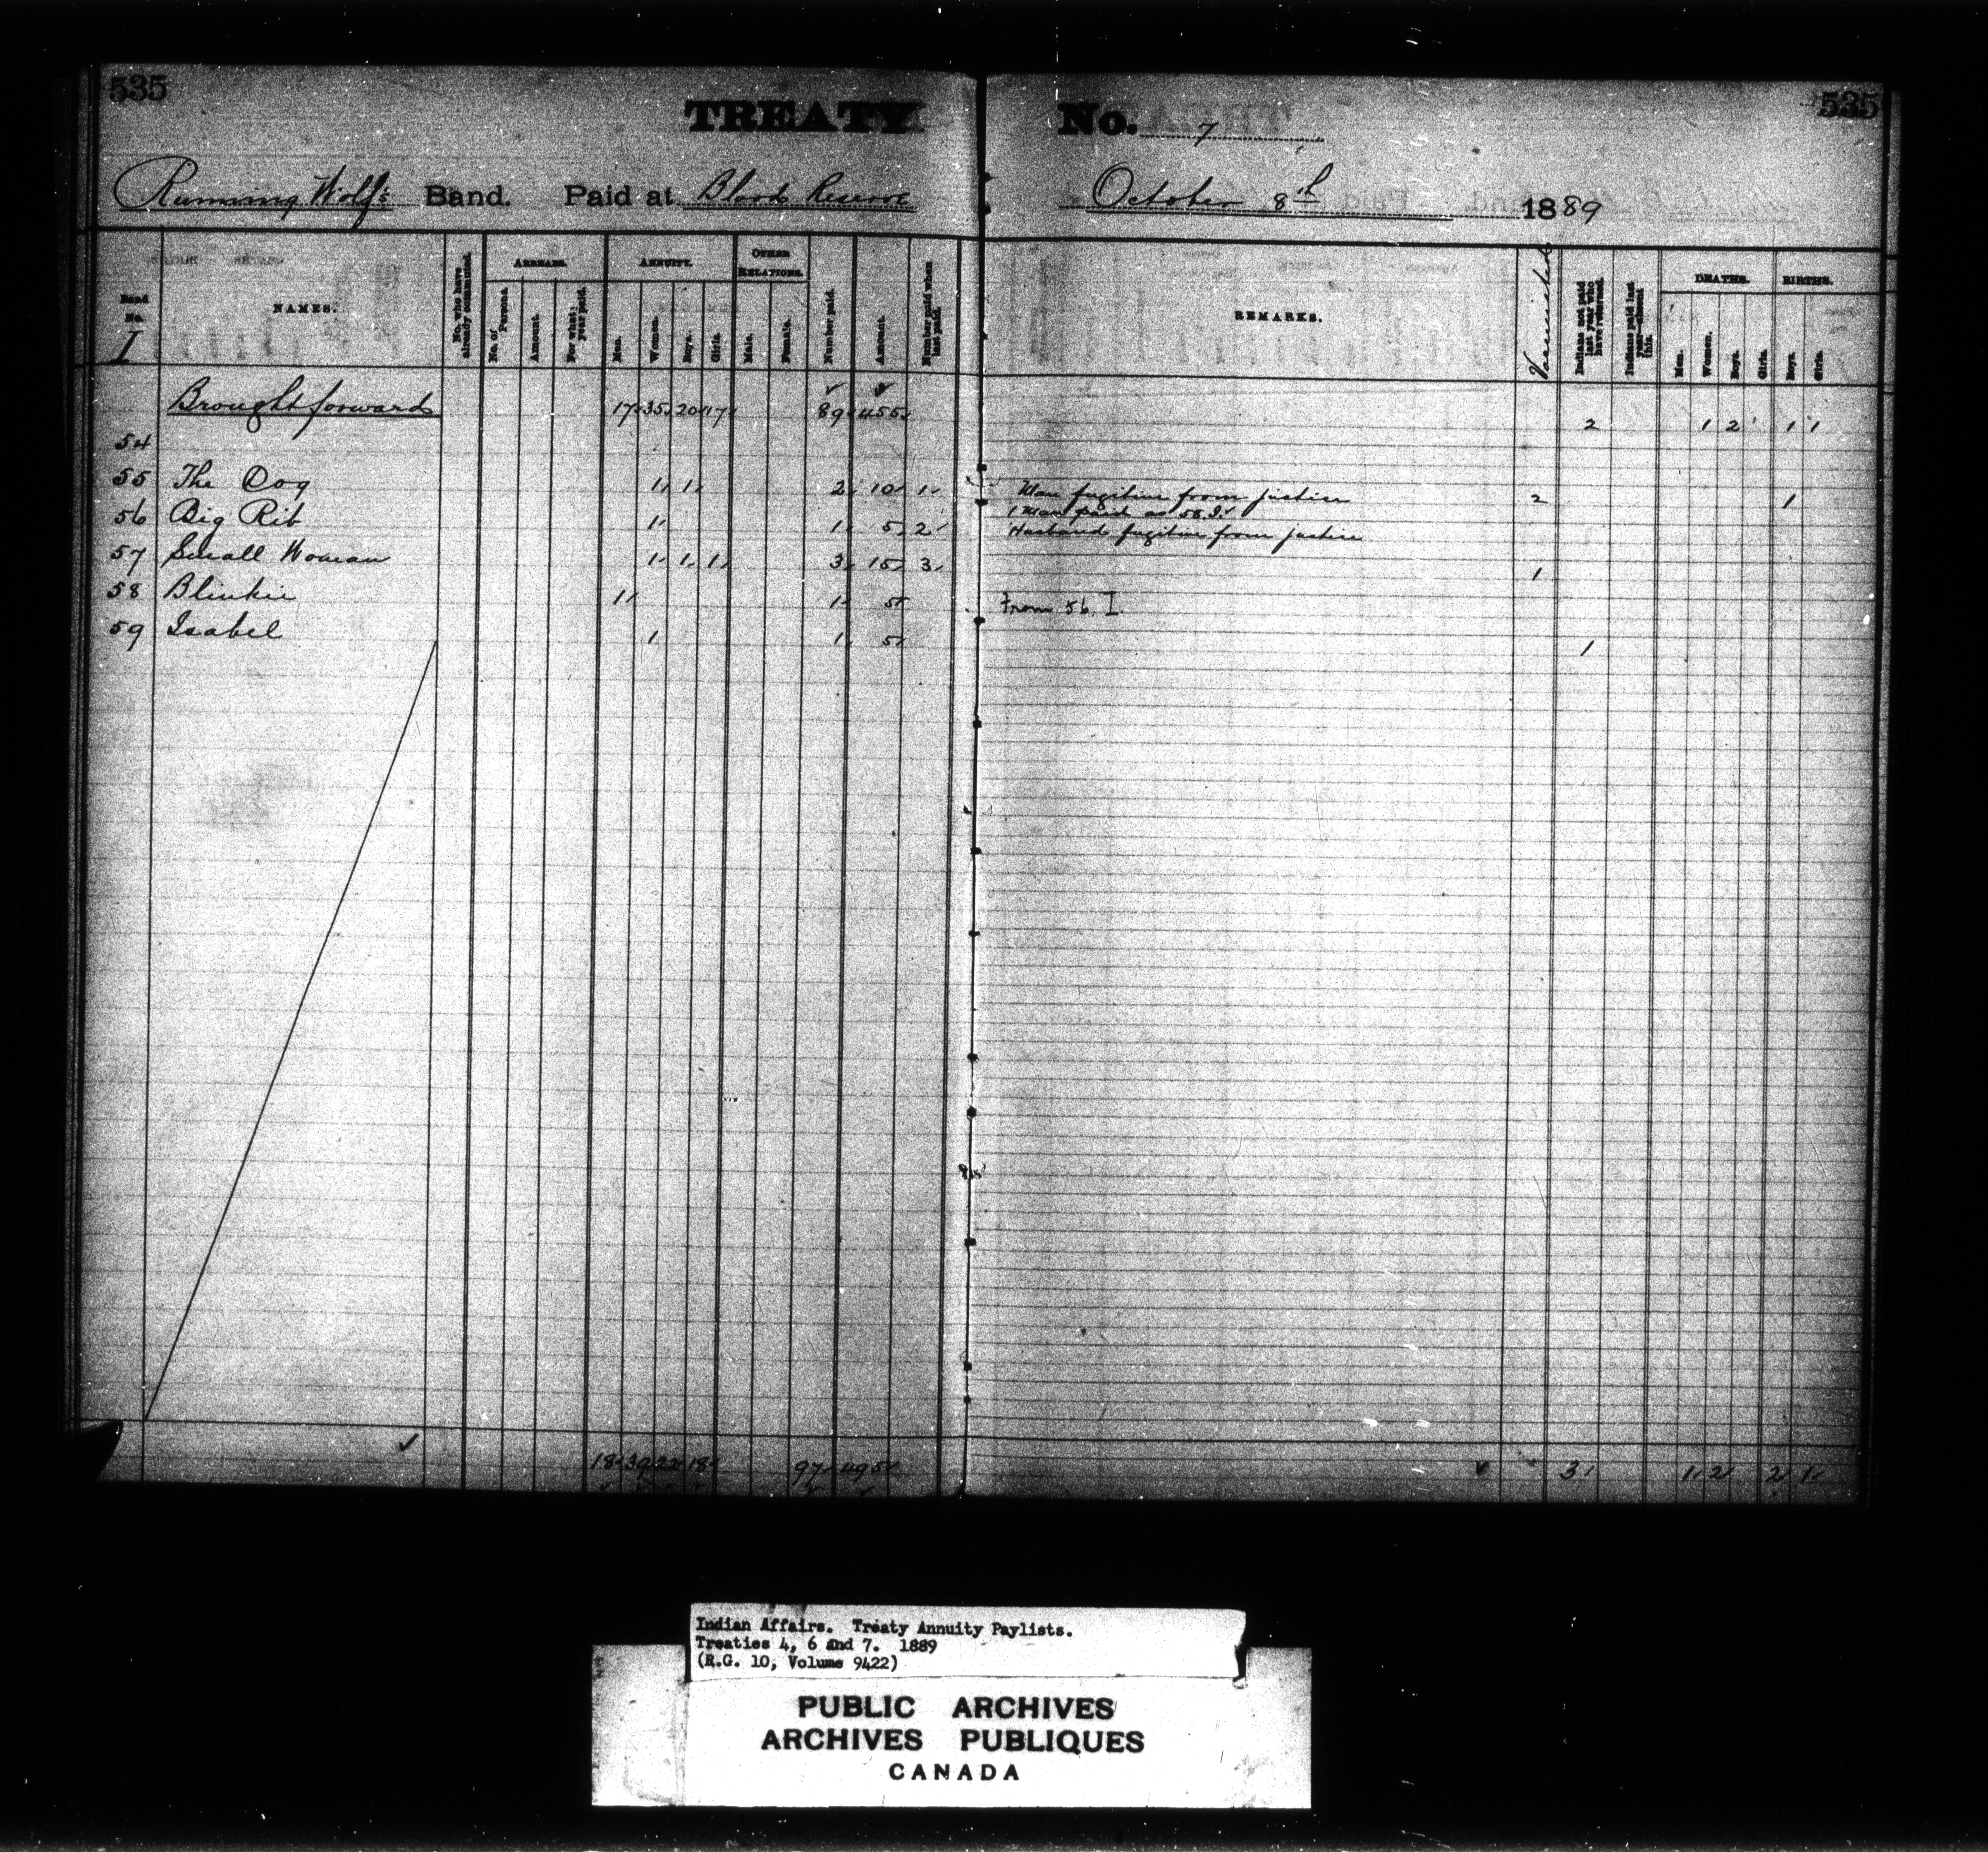 535
TREATY No. 7
535
Running Wolf's Band. Paid at Blood Reserve October 8th 1889
Band No. I
NAMES.
No. who have already commuted.
ARREARS.
No. of Persons.
Amount.
For what year paid.
ANNUITY.
Men.
Women.
Boys.
Girls.
OTHER RELATIONS.
Male.
Female.
Number paid.
Amount.
Number paid when last paid.
REMARKS.
Vaccinated
Indians not paid last year who have returned.
Indians paid last year—absent this.
DEATHS.
Men.
Women.
Boys.
Girls.
BIRTHS.
Boys.
Girls.
Brought forward 17 35 20 17 89 455 2 1 2 1 1
54
55 The Dog 1 1 2 10 1 Man fugitive from justice 2 1
56 Big Rib 1 1 5 2 1 Man paid as 58 I
Husband fugitive from justice
57 Small Woman 1 1 1 3 15 3 1
58 Blinkie 1 1 5 From 56 I
59 Isabel 1 1 5 1
18 39 22 18 97 495 3 1 2 2 1
Indian Affairs. Treaty Annuity Paylists.
Treaties 4, 6 and 7. 1889
(R.G. 10, Volume 9422)
PUBLIC ARCHIVES
ARCHIVES PUBLIQUES
CANADA